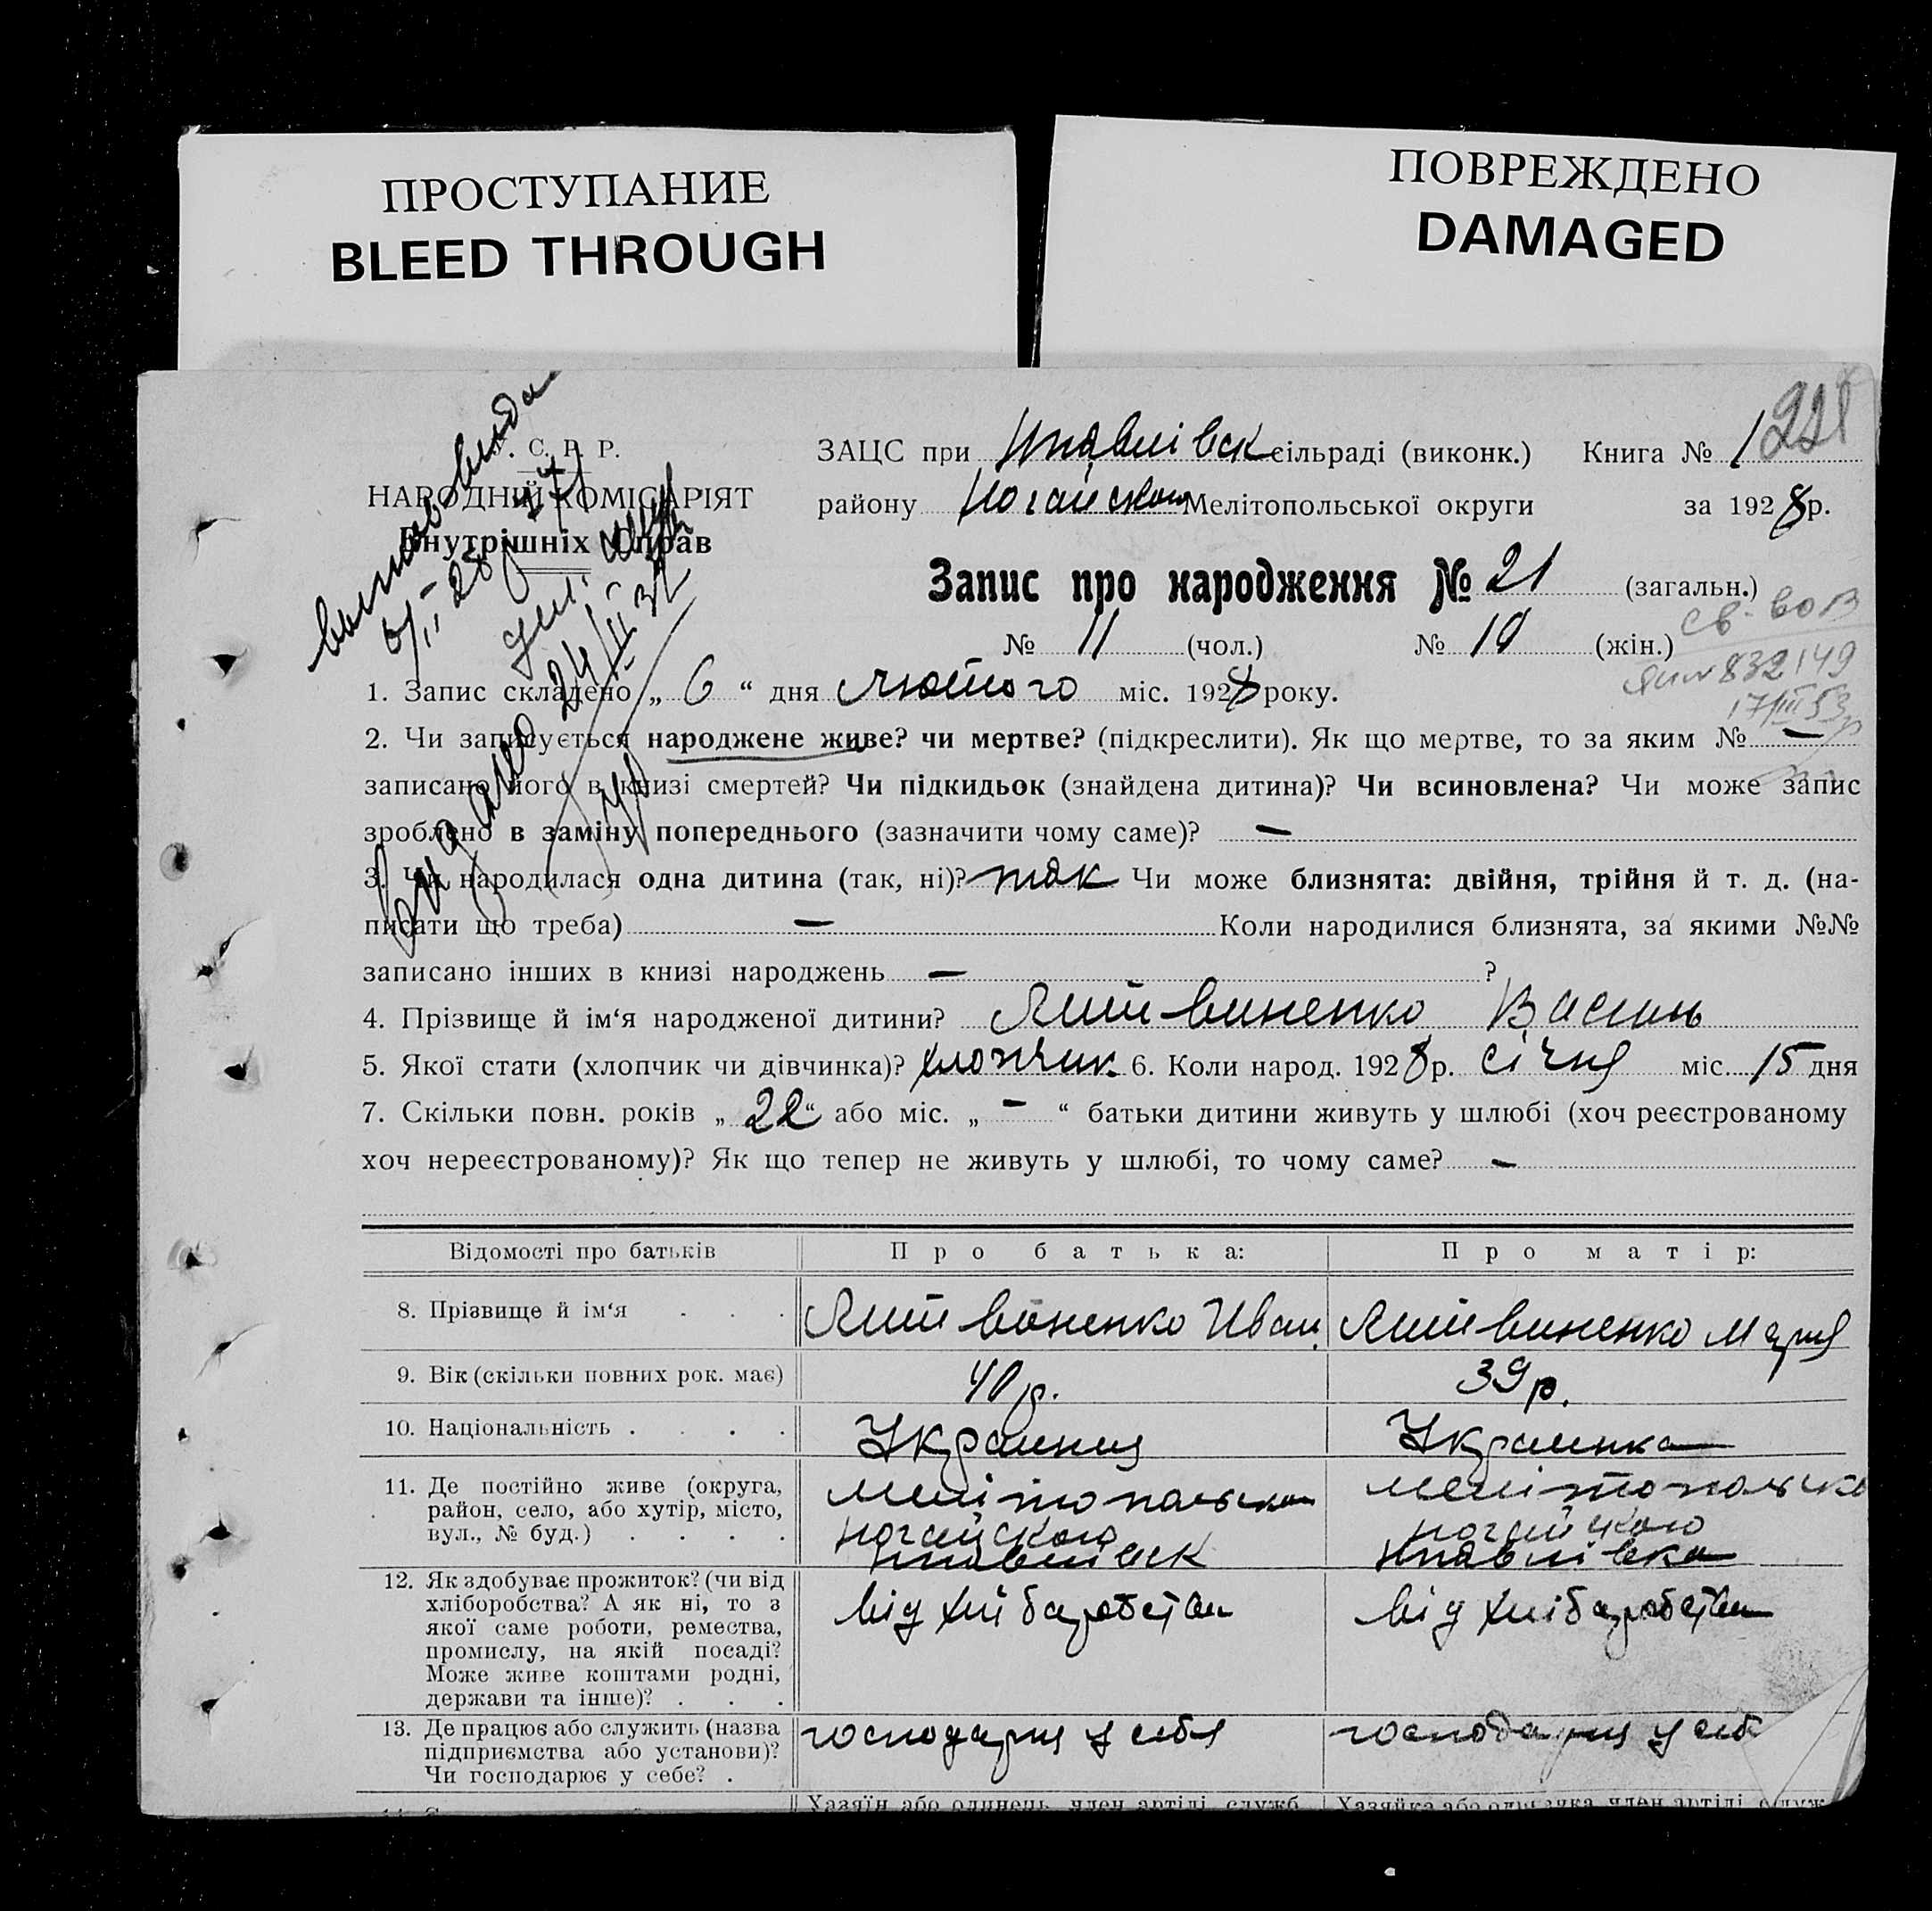 ПРОСТУПАНИЕ
BLEED THROUGH
ПОВРЕЖДЕНО
DAMAGED
У. С. Р. Р.
НАРОДНІЙ КОМІСАРІЯТ
Внутрішніх Справ
ЗАЦС при сільраді (виконк.) Книга № 1
221
району Ногайского Мелітопольської округи за 1928 р.
Запис про народження № 21 (загальн.)
№ 11 (чол.) № 10 (жін.)
св-во
832149
17/III 53
24/II 32
1. Запис складено „ 6 “ дня лютого міс. 1928 року.
2. Чи записується народжене живе? чи мертве? (підкреслити). Як що мертве, то за яким № —
записано його в книзі смертей? Чи підкидьок (знайдена дитина)? Чи всиновлена? Чи може запис
зроблено в заміну попереднього (зазначити чому саме)? —
3. Чи народилася одна дитина (так, ні)? так Чи може близнята: двійня, трійня й т. д. (на-
писати що треба) — Коли народилися близнята, за якими №№
записано інших в книзі народжень — ?
4. Прізвище й ім‘я народженої дитини? Литвиненко Василь
5. Якої стати (хлопчик чи дівчинка)? хлопчик 6. Коли народ. 1928 р. січня міс. 15 дня
7. Скільки повн. років „ 22 “ або міс. „ — “ батьки дитини живуть у шлюбі (хоч реєстрованому
хоч нереєстрованому)? Як що тепер не живуть у шлюбі, то чому саме? —
Відомості про батьків Про батька: Про матір:
8. Прізвище й ім‘я . . . Литвиненко Иван Литвиненко Мария
9. Вік (скільки повних рок. має) 40 р. 39 р.
10. Національність . . . . Украинец Украинка
11. Де постійно живе (округа,
район, село, або хутір, місто,
вул., № буд.) . . . .
Мелітопольскои
Ногайского
Мелітопольско
Ногайского
12. Як здобуває прожиток? (чи від
хліборобства? А як ні, то з
якої саме роботи, ремества,
промислу, на якій посаді?
Може живе коштами родні,
держави та інше)? . . .
від хліборобства
від хліборобства
13. Де працює або служить (назва
підприємства або установи)?
Чи господарює у себе? .
господария у себя
господария у себ
Хазяїн або одинець, член артілі, служб.
Хазяйка або одиначка, член артілі, служ